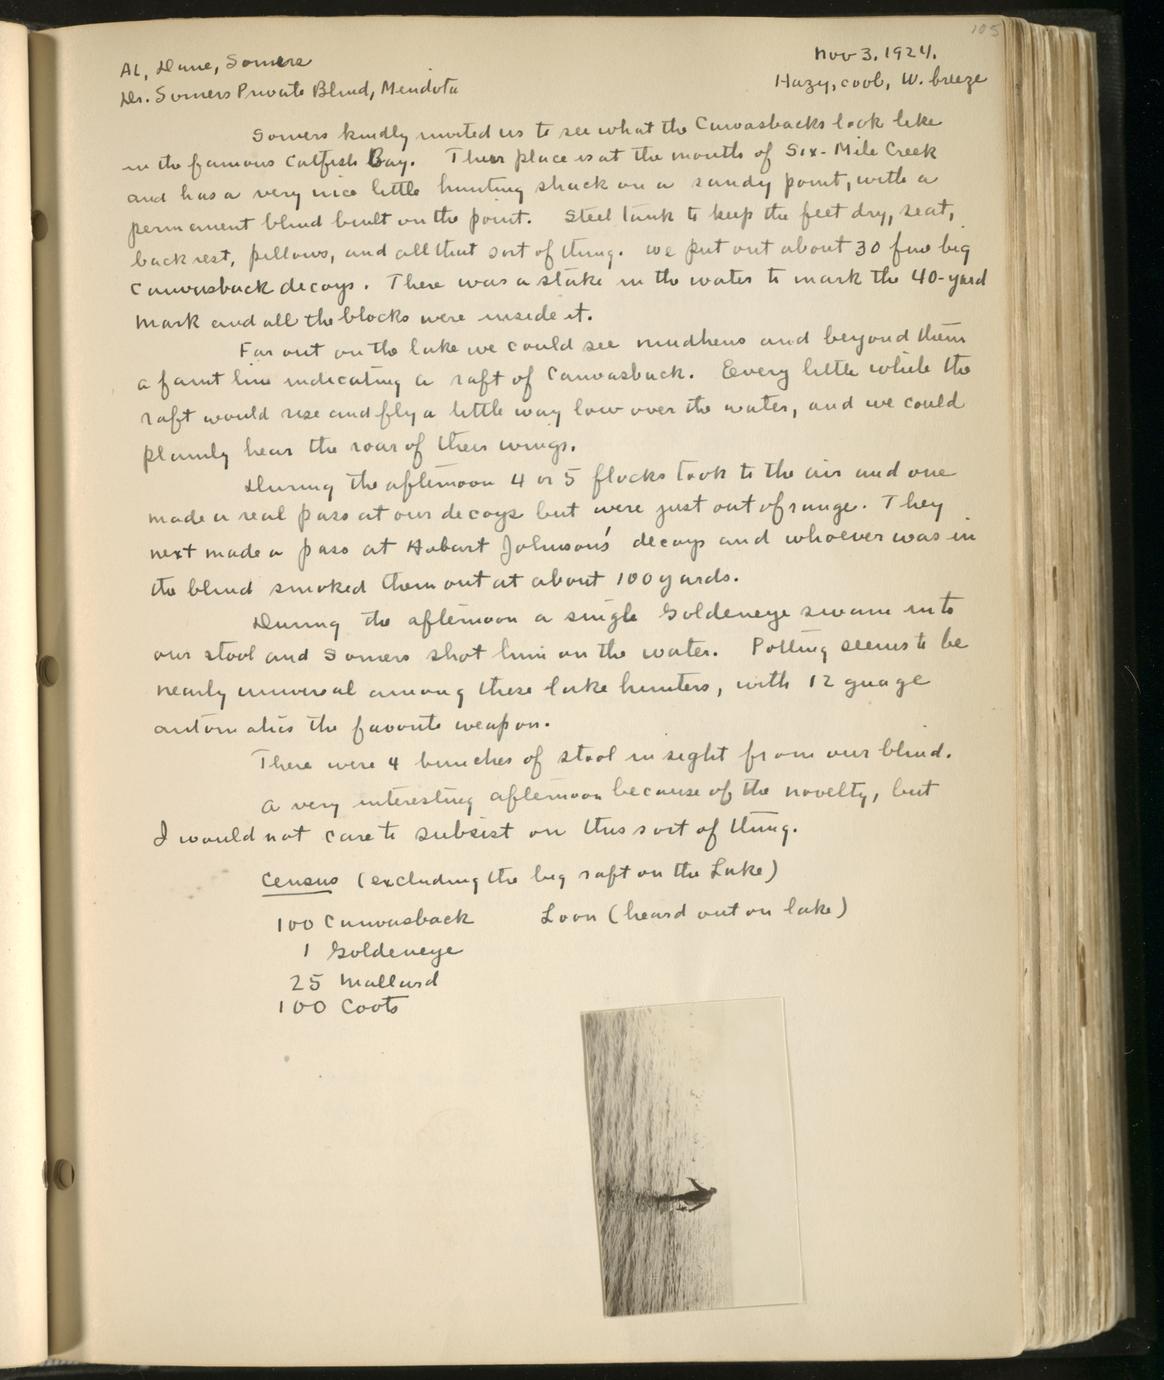 105
AL, Dane, Somers
Nov 3, 1924.
Dr. Somers Private Blind, Mendota
Hazy, cool, W. breeze
Somers kindly invited us to see what the Canvasbacks look like
in the famous Catfish Bay. Their place is at the mouth of Six-Mile Creek
and has a very nice little hunting shack on a sandy point, with a
permanent blind built on the point. Steel tank to keep the feet dry, seat,
back rest, pillows, and all that sort of thing. We put out about 30 fine big
Canvasback decoys. There was a stake in the water to mark the 40-yard
mark and all the blocks were inside it.
Far out on the lake we could see mudhens and beyond them
a faint line indicating a raft of Canvasback. Every little while the
raft would rise and fly a little way low over the water, and we could
plainly hear the roar of their wings.
During the afternoon 4 or 5 flocks took to the air and one
made a real pass at our decoys but were just out of range. They
next made a pass at Hobart Johnson's decoys and whoever was in
the blind smoked them out at about 100 yards.
During the afternoon a single Goldeneye swam into
our stool and Somers shot him on the water. Potting seems to be
nearly universal among these lake hunters, with 12 guage
automatics the favorite weapon.
There were 4 bunches of stool in sight from our blind.
A very interesting afternoon because of the novelty, but
I would not care to subsist on this sort of thing.
Census (excluding the big raft on the Lake)
100 Canvasback Loon (heard out on lake)
1 Goldeneye
25 Mallard
100 Coots